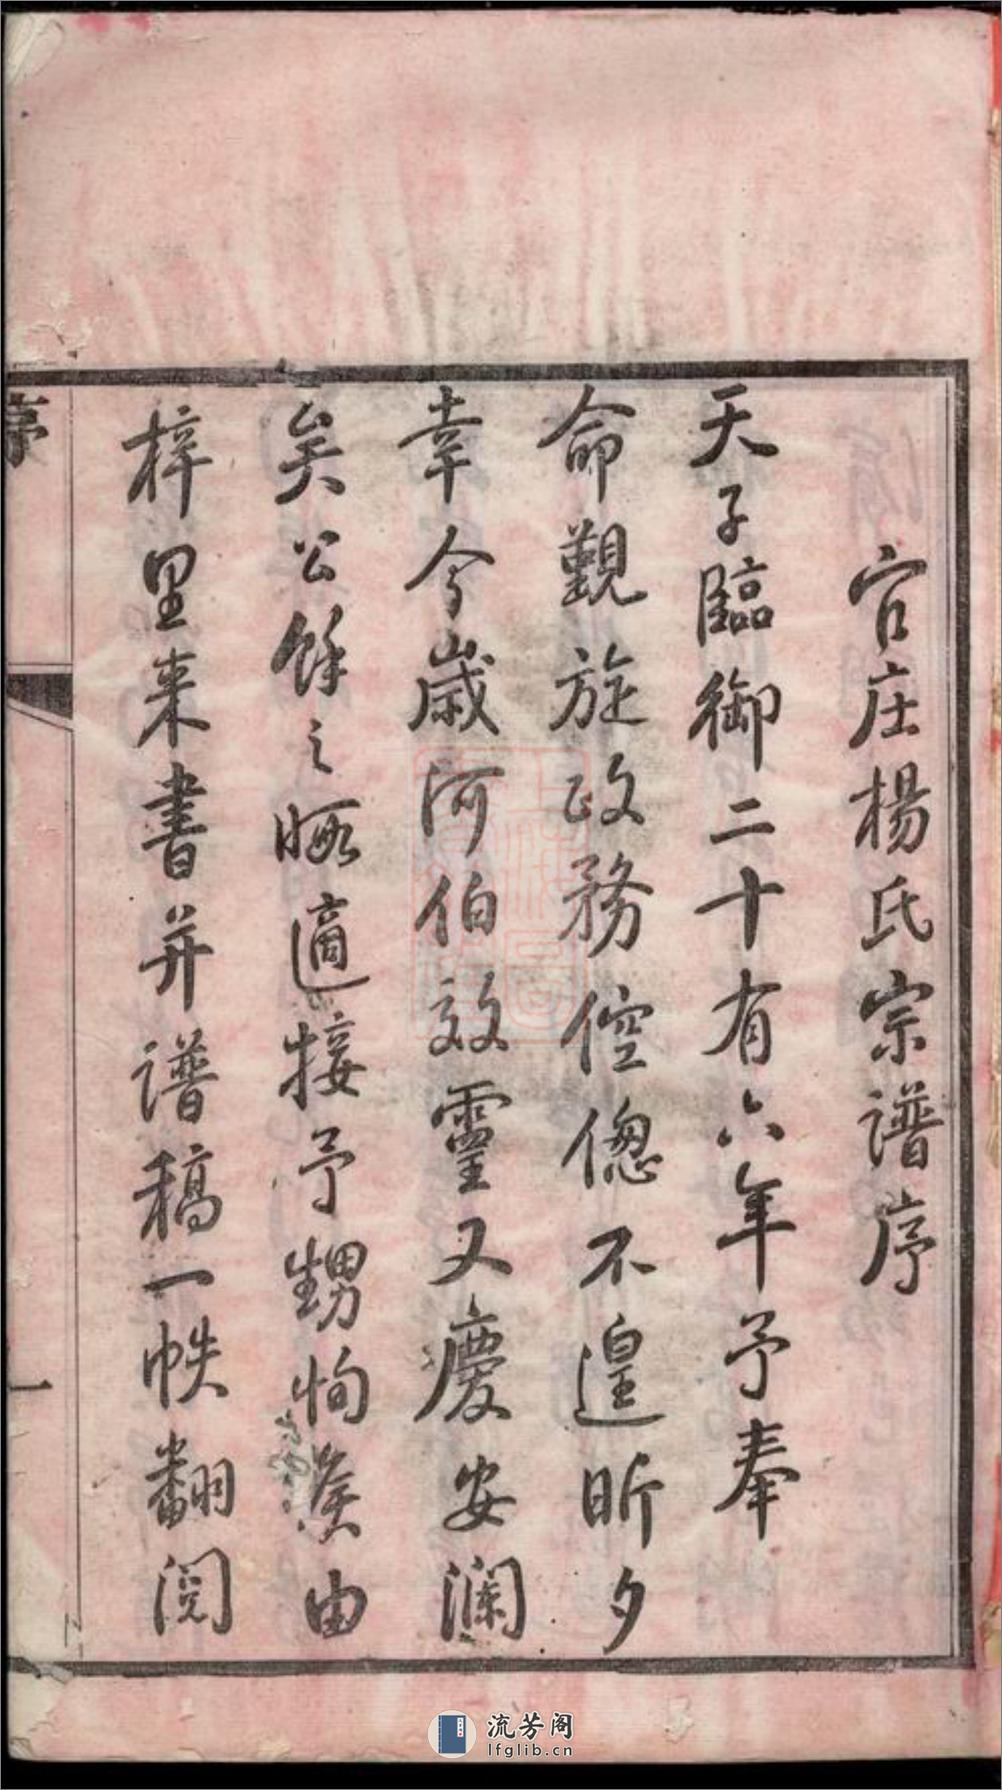 官庄楊氏宗譜序
天子臨御二十有六年予奉
命觀旋政務倥偬不遑昕夕
幸今歲河伯效靈又慶安瀾
矣公餘之暇適接予甥恂矦由
梓里来書并譜稿一帙翻閱
序
一
流芳阁
lfglib.cn